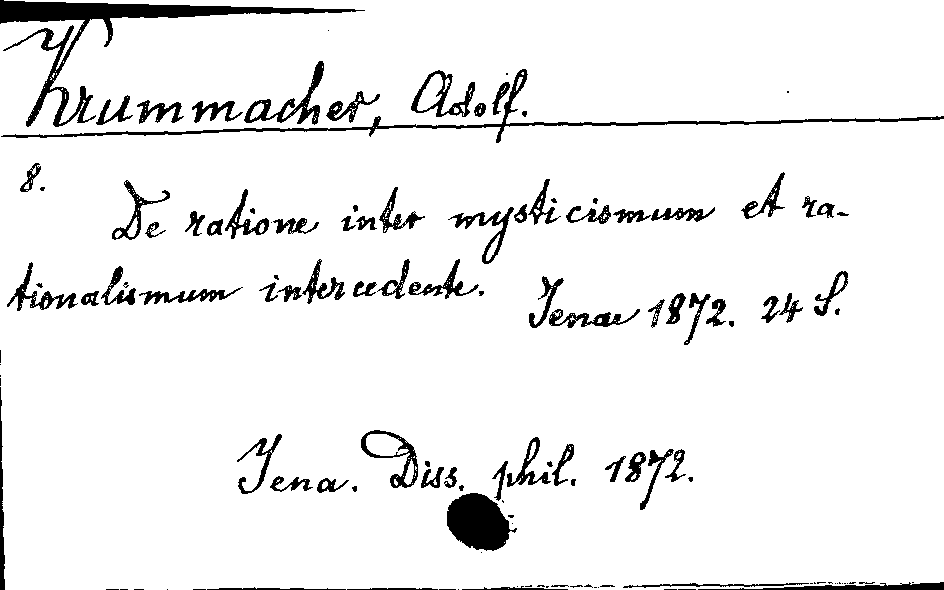 Krummacher, Adolf.
8.
De ratione inter mysticismum et ra-
tionalismum intercedente.
Jenae 1872. 24 S.
Jena. Diss. phil. 1872.